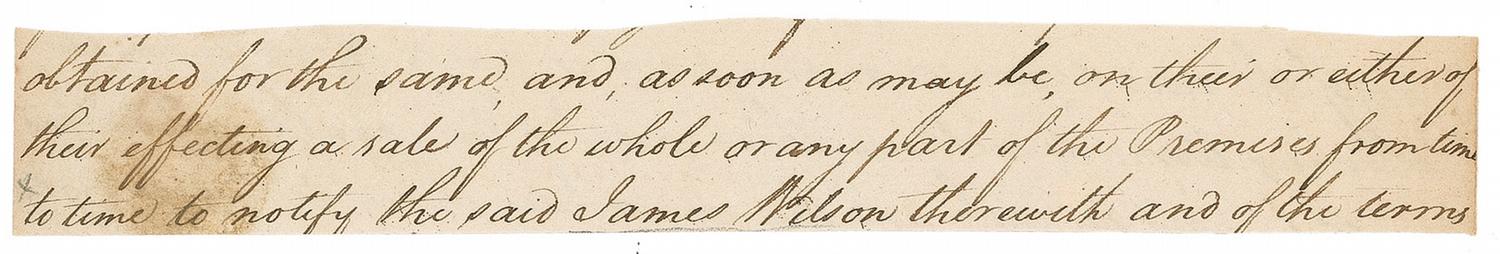 obtained for the same, and, as soon as may be, on their or either of
their effecting a sale of the whole or any part of the Premises from time
to time to notify the said James Wilson therewith and of the terms